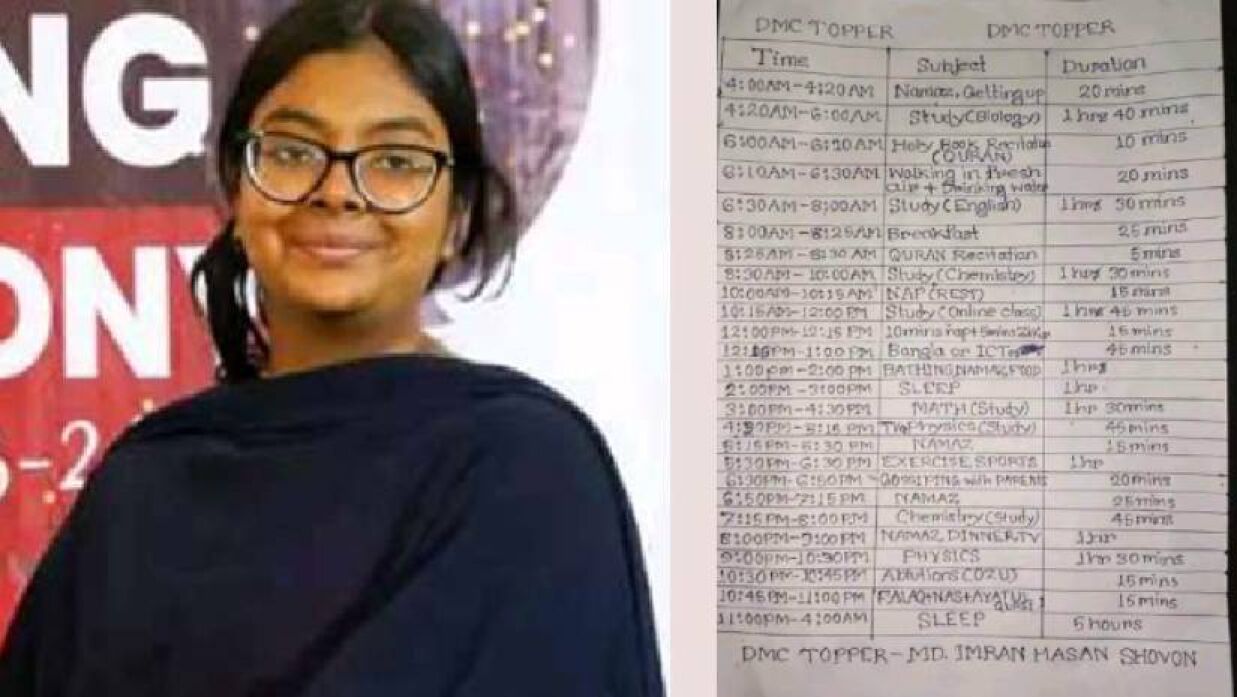 NG
ONY
DMC TOPPER DMC TOPPER
Time Subject Duration
4:00AM-4:20AM Namaz, Getting up 20 mins
4:20AM-6:00AM Study(Biology) 1 hrs 40 mins
6:00AM-6:10AM Holy Book Recitation (QURAN) 10 mins
6:10AM-6:30AM Walking in fresh air + Drinking water 20 mins
6:30AM-8:00AM Study(English) 1 hrs 30 mins
8:00AM-8:25AM Breakfast 25 mins
8:25AM-8:30AM QURAN Recitation 5 mins
8:30AM-10:00AM Study(Chemistry) 1 hrs 30 mins
10:00AM-10:15AM NAP(REST) 15 mins
10:15AM-12:00PM Study(Online class) 1 hrs 45 mins
12:00PM-12:15PM 10mins nap+5mins 15 mins
12:15PM-1:00PM Bangla or ICT 45 mins
1:00PM-2:00PM BATHING, NAMAZ, FOOD 1hrs
2:00PM-3:00PM SLEEP 1hr
3:00PM-4:30PM MATH(Study) 1hr 30mins
4:30PM-5:15PM Physics(Study) 45 mins
5:15PM-5:30PM NAMAZ 15 mins
5:30PM-6:30PM EXERCISE, SPORTS 1hr
6:30PM-6:50PM GOSSIPING with PARENTS 20 mins
6:50PM-7:15PM NAMAZ 25 mins
7:15PM-8:00PM Chemistry(Study) 45 mins
8:00PM-9:00PM NAMAZ, DINNER, TV 1hr
9:00PM-10:30PM PHYSICS 1hr 30 mins
10:30PM-10:45PM Ablutions(OZU) 15 mins
10:45PM-11:00PM FALAQ+NAS+AYATUL 15 mins
11:00PM-4:00AM SLEEP 5 hours
DMC TOPPER-MD. IMRAN HASAN SHOVON